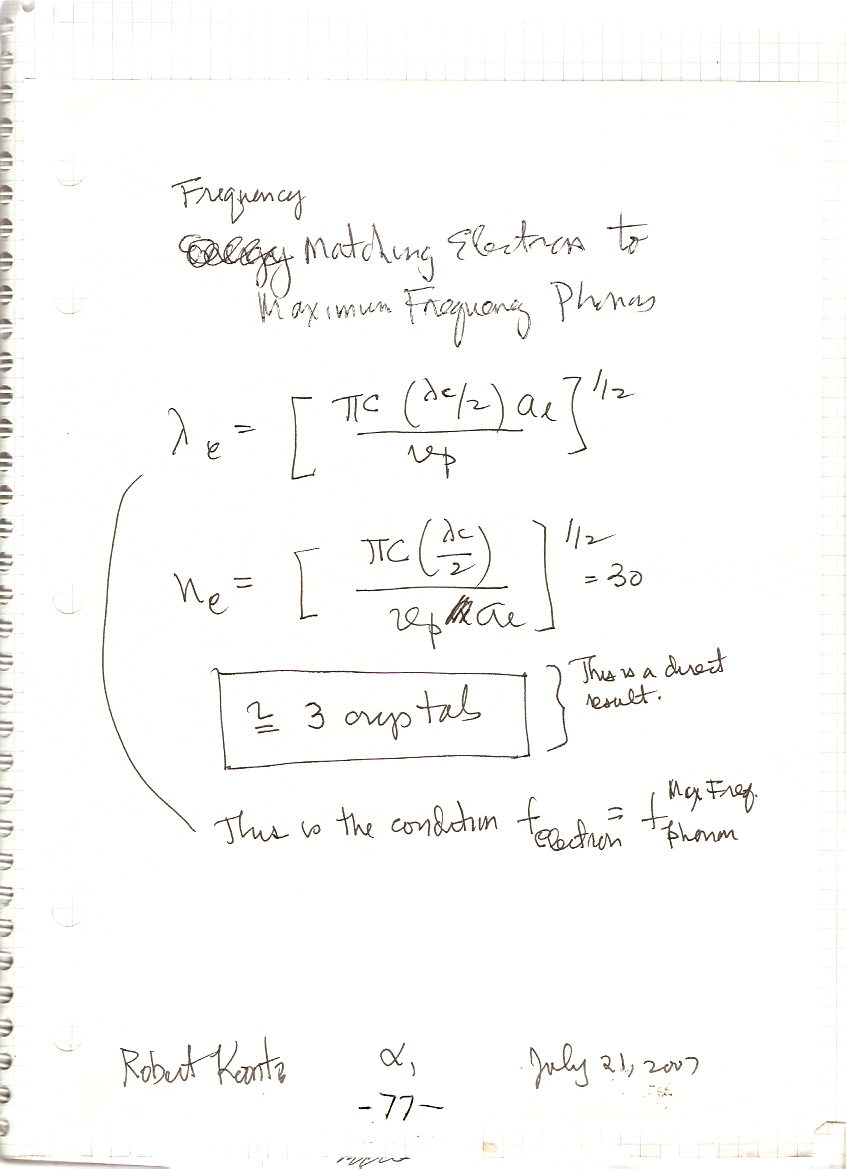 Frequency
Matching Electrons to
Maximum Frequency Phonons
λe = [ πc (λc/2) ae / vp ]^1/2
ne = [ πc (λc/2) / vp ae ]^1/2 = 30
≅ 3 crystals } This is a direct
result.
This is the condition f electron = f phonon Max Freq.
Robert Koontz α1 July 21, 2007
-77-